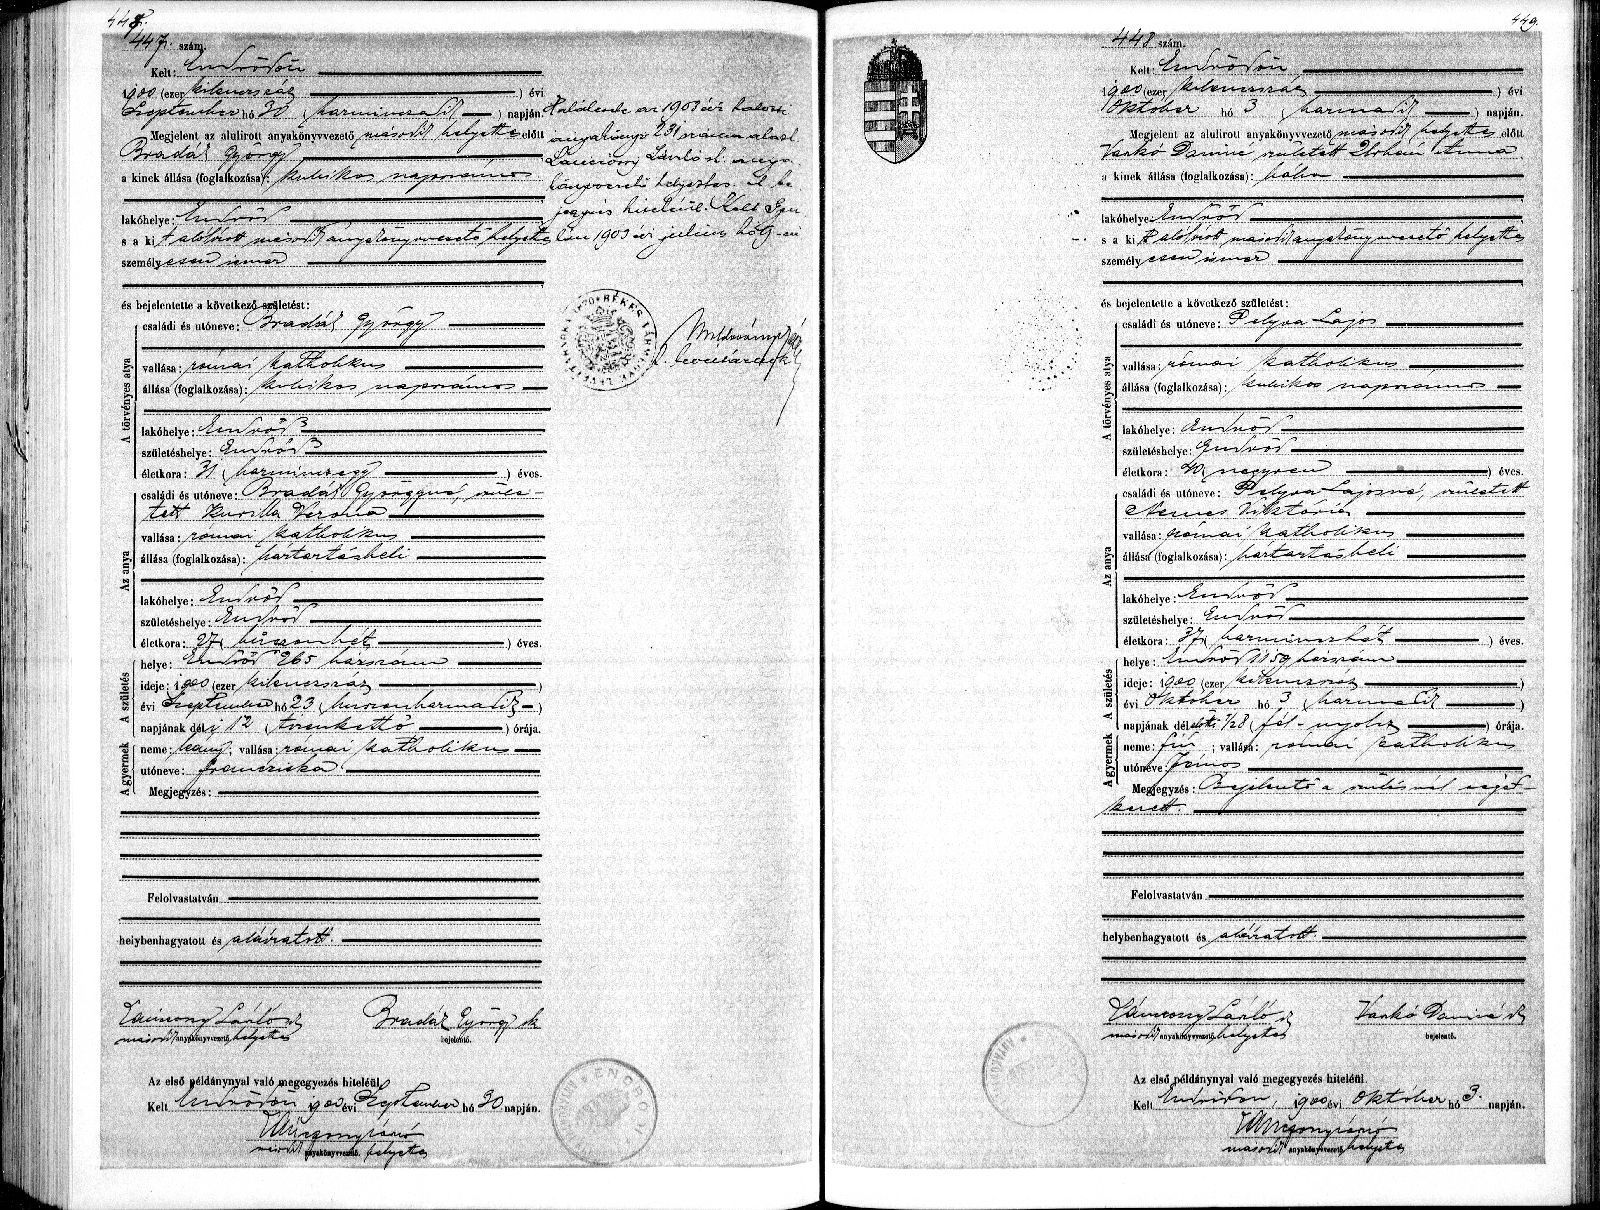 448.
447. szám.
Kelt: Endrődön
1900 (ezer kilenczszáz) évi
Szeptember hó 30 (harminczadik) napján.
Megjelent az alulirott anyakönyvvezető másodh helyettes előtt
Bradák György
a kinek állása (foglalkozása): kubikos napszámos
lakóhelye: Endrőd
s a kit alólirott másodh anyakönyvvezető helyettes
személyesen ismer
és bejelentette a következő születést:
A törvényes atya
családi és utóneve: Bradák György
vallása: római katholikus
állása (foglalkozása): kubikos napszámos
lakóhelye: Endrőd
születéshelye: Endrőd
életkora: 31 (harminczegy) éves.
Az anya
családi és utóneve: Bradák Györgyné, szüle-
tett Kurilla Verona
vallása: római katholikus
állása (foglalkozása): háztartásbeli
lakóhelye: Endrőd
születéshelye: Endrőd
életkora: 27 (huszonhét) éves.
A születés
helye: Endrőd 265 házszám
ideje: 1900 (ezer kilenczszáz)
évi Szeptember hó 23 (huszonharmadik)
napjának déli 12 (tizenkettő) órája.
A gyermek
neme: leány; vallása: római katholikus
utóneve: Francziska
Megjegyzés:
Felolvastatván
helybenhagyatott és aláiratott.
László
Bradák György sk
másodh anyakönyvvezető helyettes
bejelentő.
Az első példánynyal való megegyezés hiteléül.
Kelt Endrődön 1900 évi Szeptember hó 30 napján.
másodh anyakönyvvezető helyettes
ENDRŐDI
az 1903 évi halotti
231
László
1903 évi julius
BÉKES VÁRMEGYE
449.
448 szám.
Kelt: Endrődön
1900 (ezer kilenczszáz) évi
Október hó 3 (harmadik) napján.
Megjelent az alulirott anyakönyvvezető másodh helyettes előtt
Varkó Daniné született Anna
a kinek állása (foglalkozása): bába
lakóhelye: Endrőd
s a kit alólirott másodh anyakönyvvezető helyettes
személyesen ismer
és bejelentette a következő születést:
A törvényes atya
családi és utóneve: Pelyva Lajos
vallása: római katholikus
állása (foglalkozása): kubikos napszámos
lakóhelye: Endrőd
születéshelye: Endrőd
életkora: 40 (negyven) éves.
Az anya
családi és utóneve: Pelyva Lajosné, született
Nemes Viktoria
vallása: római katholikus
állása (foglalkozása): háztartásbeli
lakóhelye: Endrőd
születéshelye: Endrőd
életkora: 37 (harminczhét) éves.
A születés
helye: Endrőd 1159 házszám
ideje: 1900 (ezer kilenczszáz)
évi Október hó 3 (harmadik)
napjának délelőtti 1/2 8 (fél-nyolcz) órája.
A gyermek
neme: fiú; vallása: római katholikus
utóneve: János
Megjegyzés: Bejelentő a szülésnél segéd-
kezett.
Felolvastatván
helybenhagyatott és aláiratott.
László
Varkó Daniné sk
másodh anyakönyvvezető helyettes
bejelentő.
Az első példánynyal való megegyezés hiteléül.
Kelt Endrődön, 1900 évi Október hó 3. napján.
másodh anyakönyvvezető helyettes